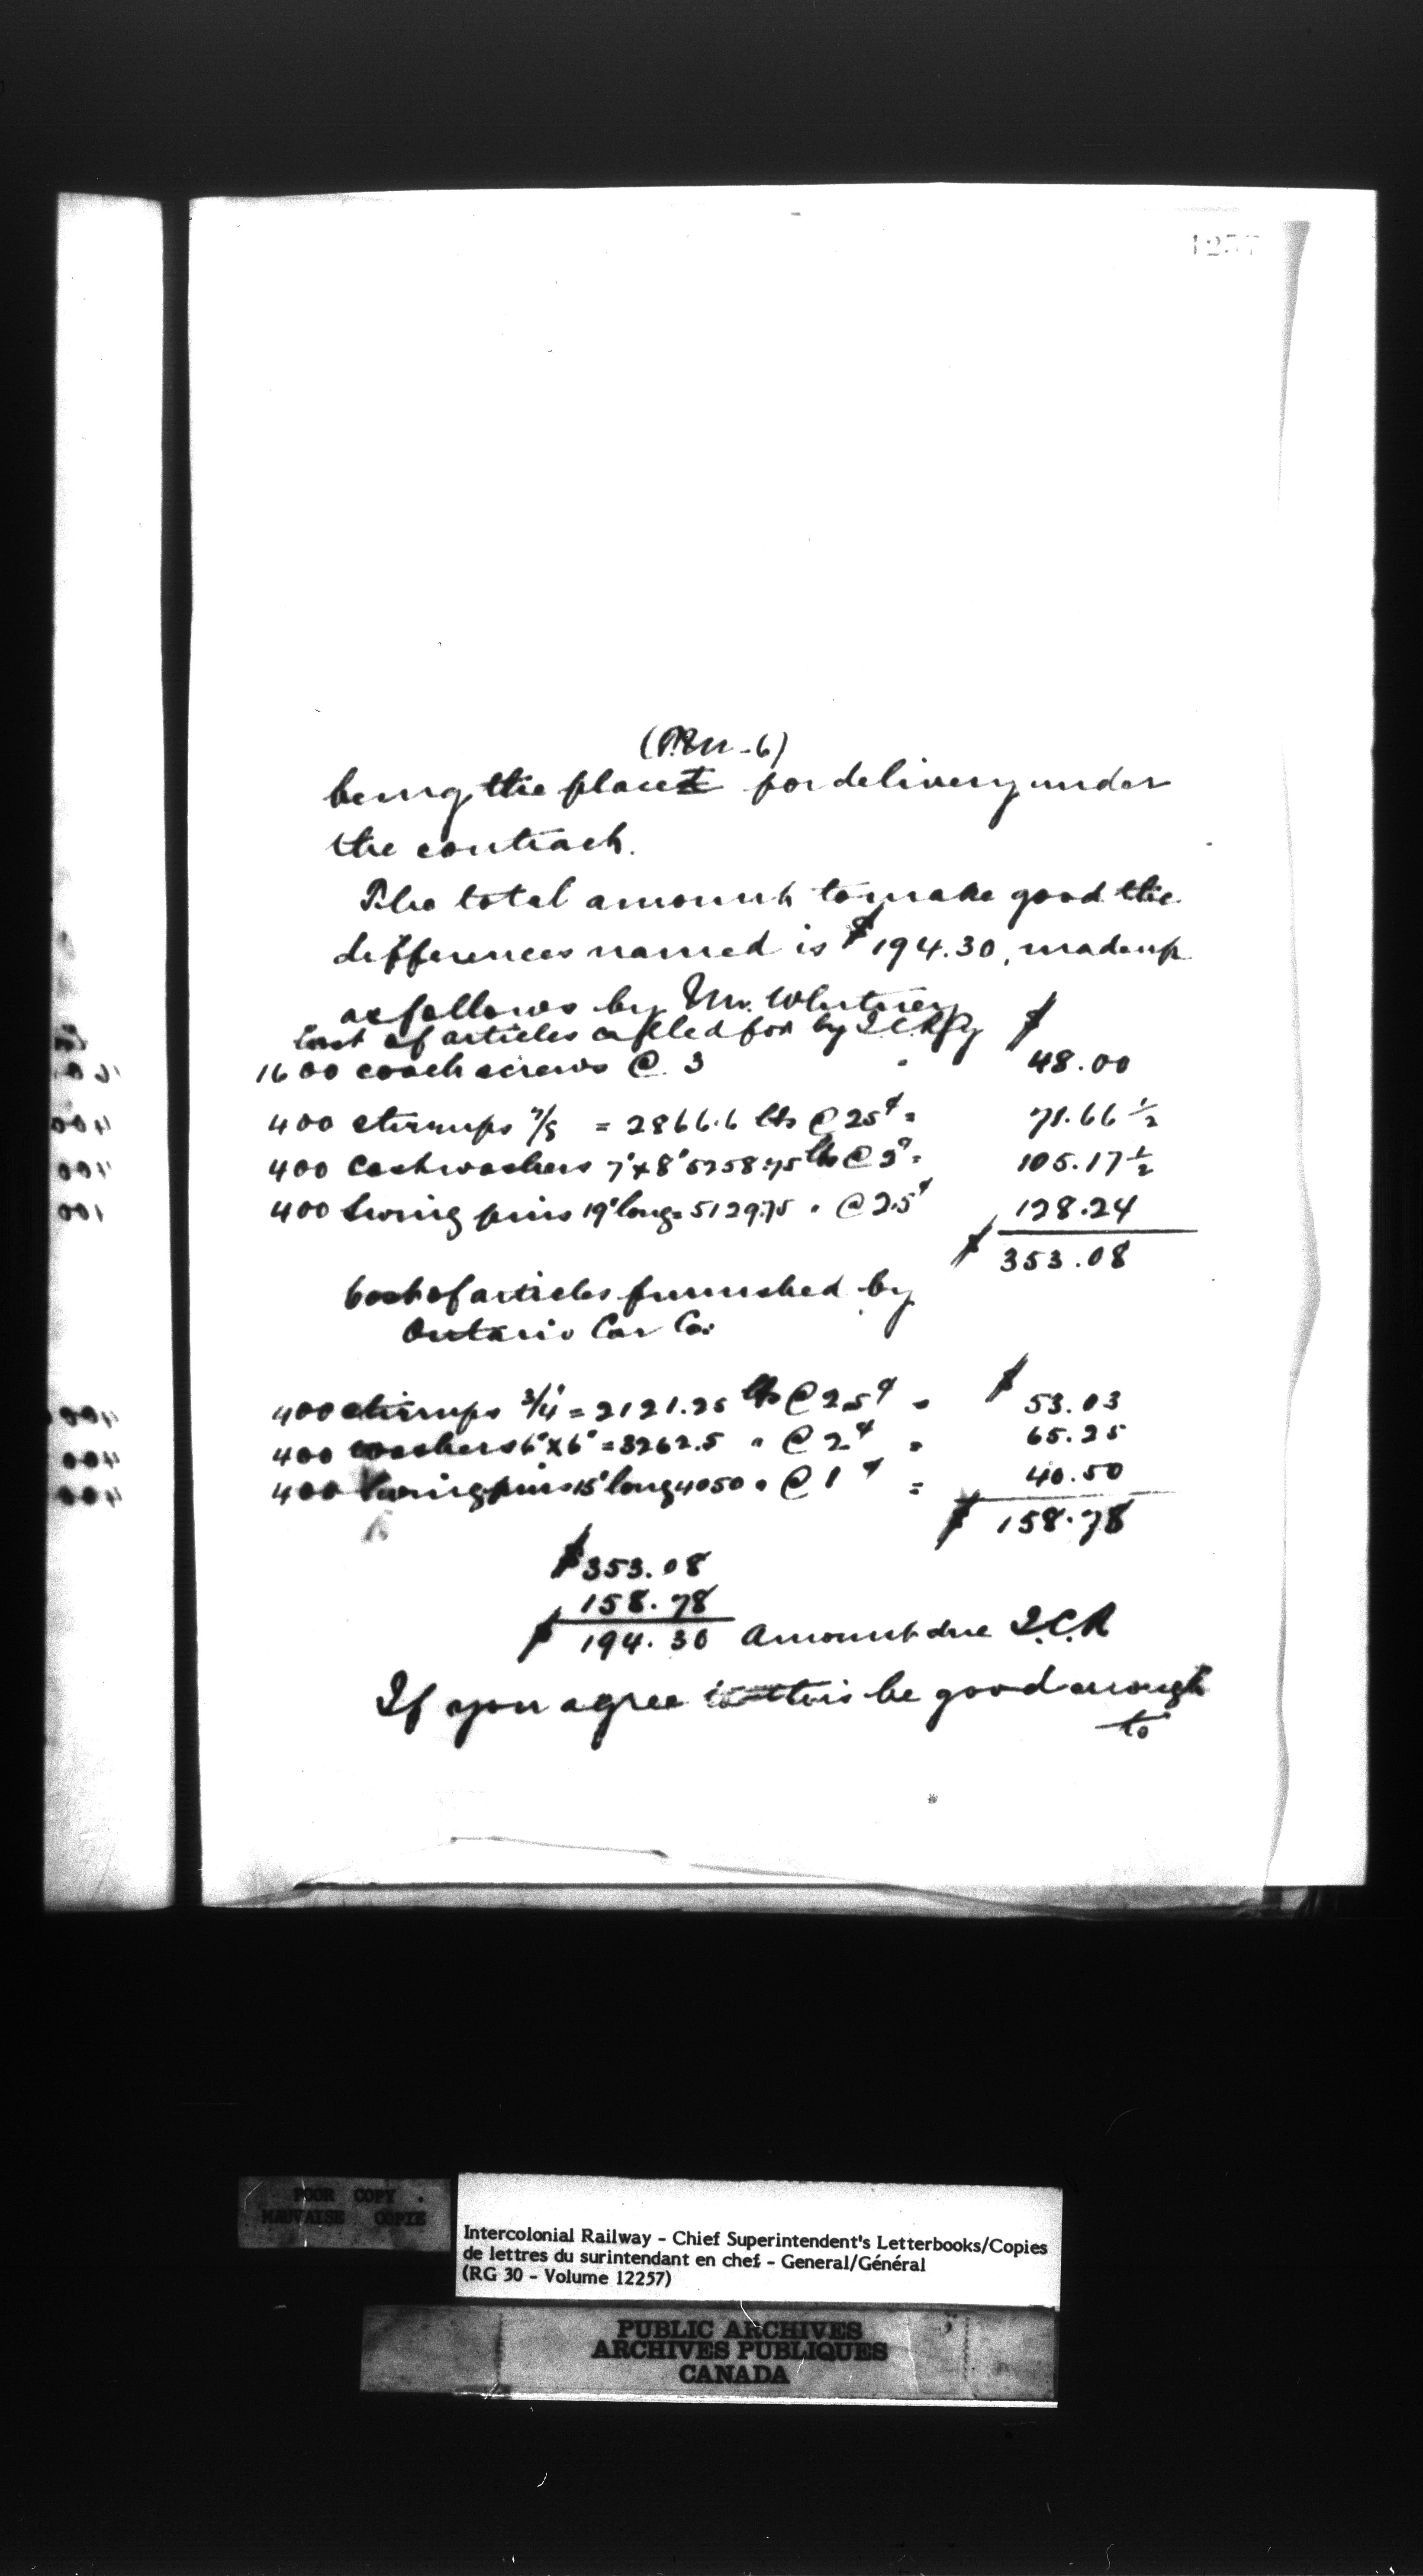 being the place for delivery under
the contract.
The total amount to make good the
differences named is $194.30, made up
as follows by Mr. Whitney
Cost of articles called for by I.C.Ry $
1600 coach screws @ 3 " 48.00
400 stirrups 7/8 = 2866.6 lbs @ 2.5¢ = 71.66 1/2
400 Cast washers 7"x8" 5258.75 lbs @ 2¢ = 105.17 1/2
400 Swing pins 19" long = 5129.75 " @ 2.5¢ 128.24
$ 353.08
Cost of articles furnished by
Ontario Car Co.
400 stirrups 3/4" = 2121.25 lbs @ 2.5¢ = $ 53.03
400 washers 6"x6" = 3262.5 " @ 2¢ = 65.25
400 Swing pins 15" long 4050 " @ 1¢ = 40.50
$ 158.78
$353.08
158.78
$ 194.30 Amount due I.C.R
If you agree to this be good enough
to
POOR COPY
MAUVAISE COPIE
Intercolonial Railway - Chief Superintendent's Letterbooks/Copies
de lettres du surintendant en chef - General/Général
(RG 30 - Volume 12257)
PUBLIC ARCHIVES
ARCHIVES PUBLIQUES
CANADA